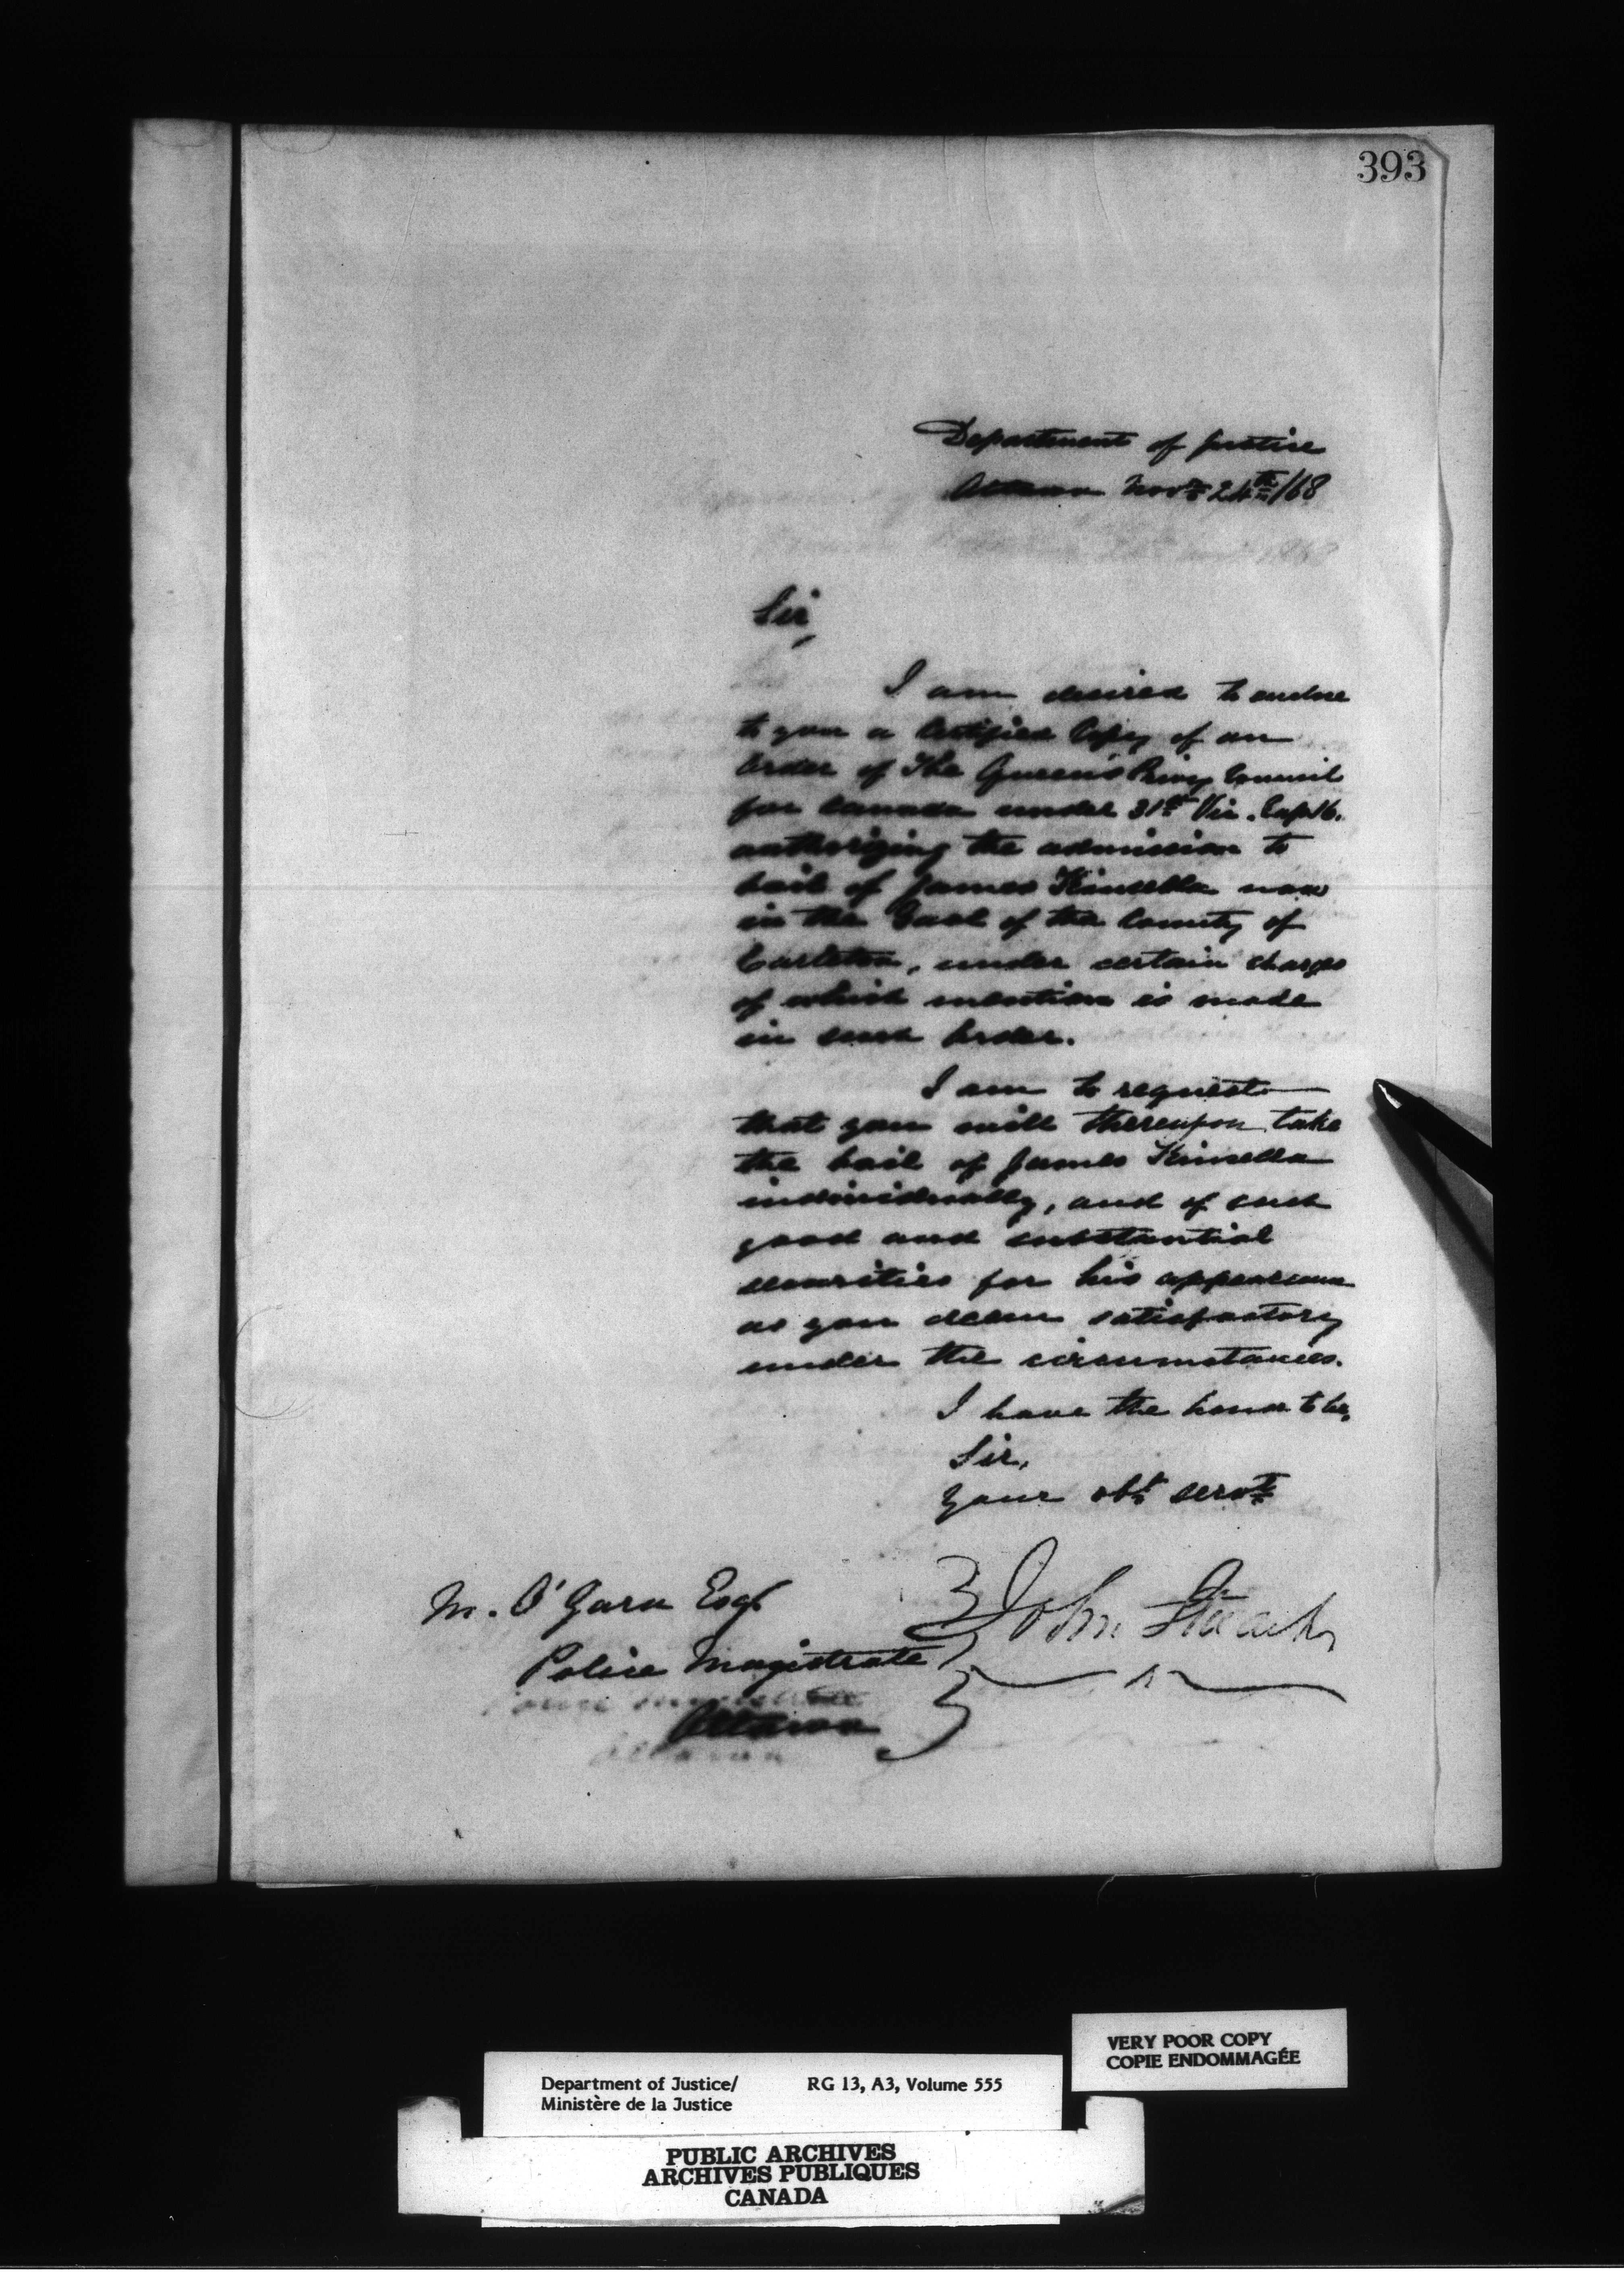 393
Department of Justice
Ottawa Novr 24th/68
Sir,
I am desired to enclose
to you a Certified Copy of an
Order of The Queen's Privy Council
for Canada under 31st Vic. Cap 16.
authorizing the admission to
bail of James Kinsella now
in the Gaol of the County of
Carleton, under certain charges
of which mention is made
in such Order.
I am to request
that you will thereupon take
the bail of James Kinsella
individually, and of such
good and substantial
securities for his appearance
as you deem satisfactory
under the circumstances.
I have the honor to be,
Sir,
Your obt servt
M. O'Gara Esqr
John
Police Magistrate
Ottawa
VERY POOR COPY
COPIE ENDOMMAGÉE
Department of Justice/ RG 13, A3, Volume 555
Ministère de la Justice
PUBLIC ARCHIVES
ARCHIVES PUBLIQUES
CANADA